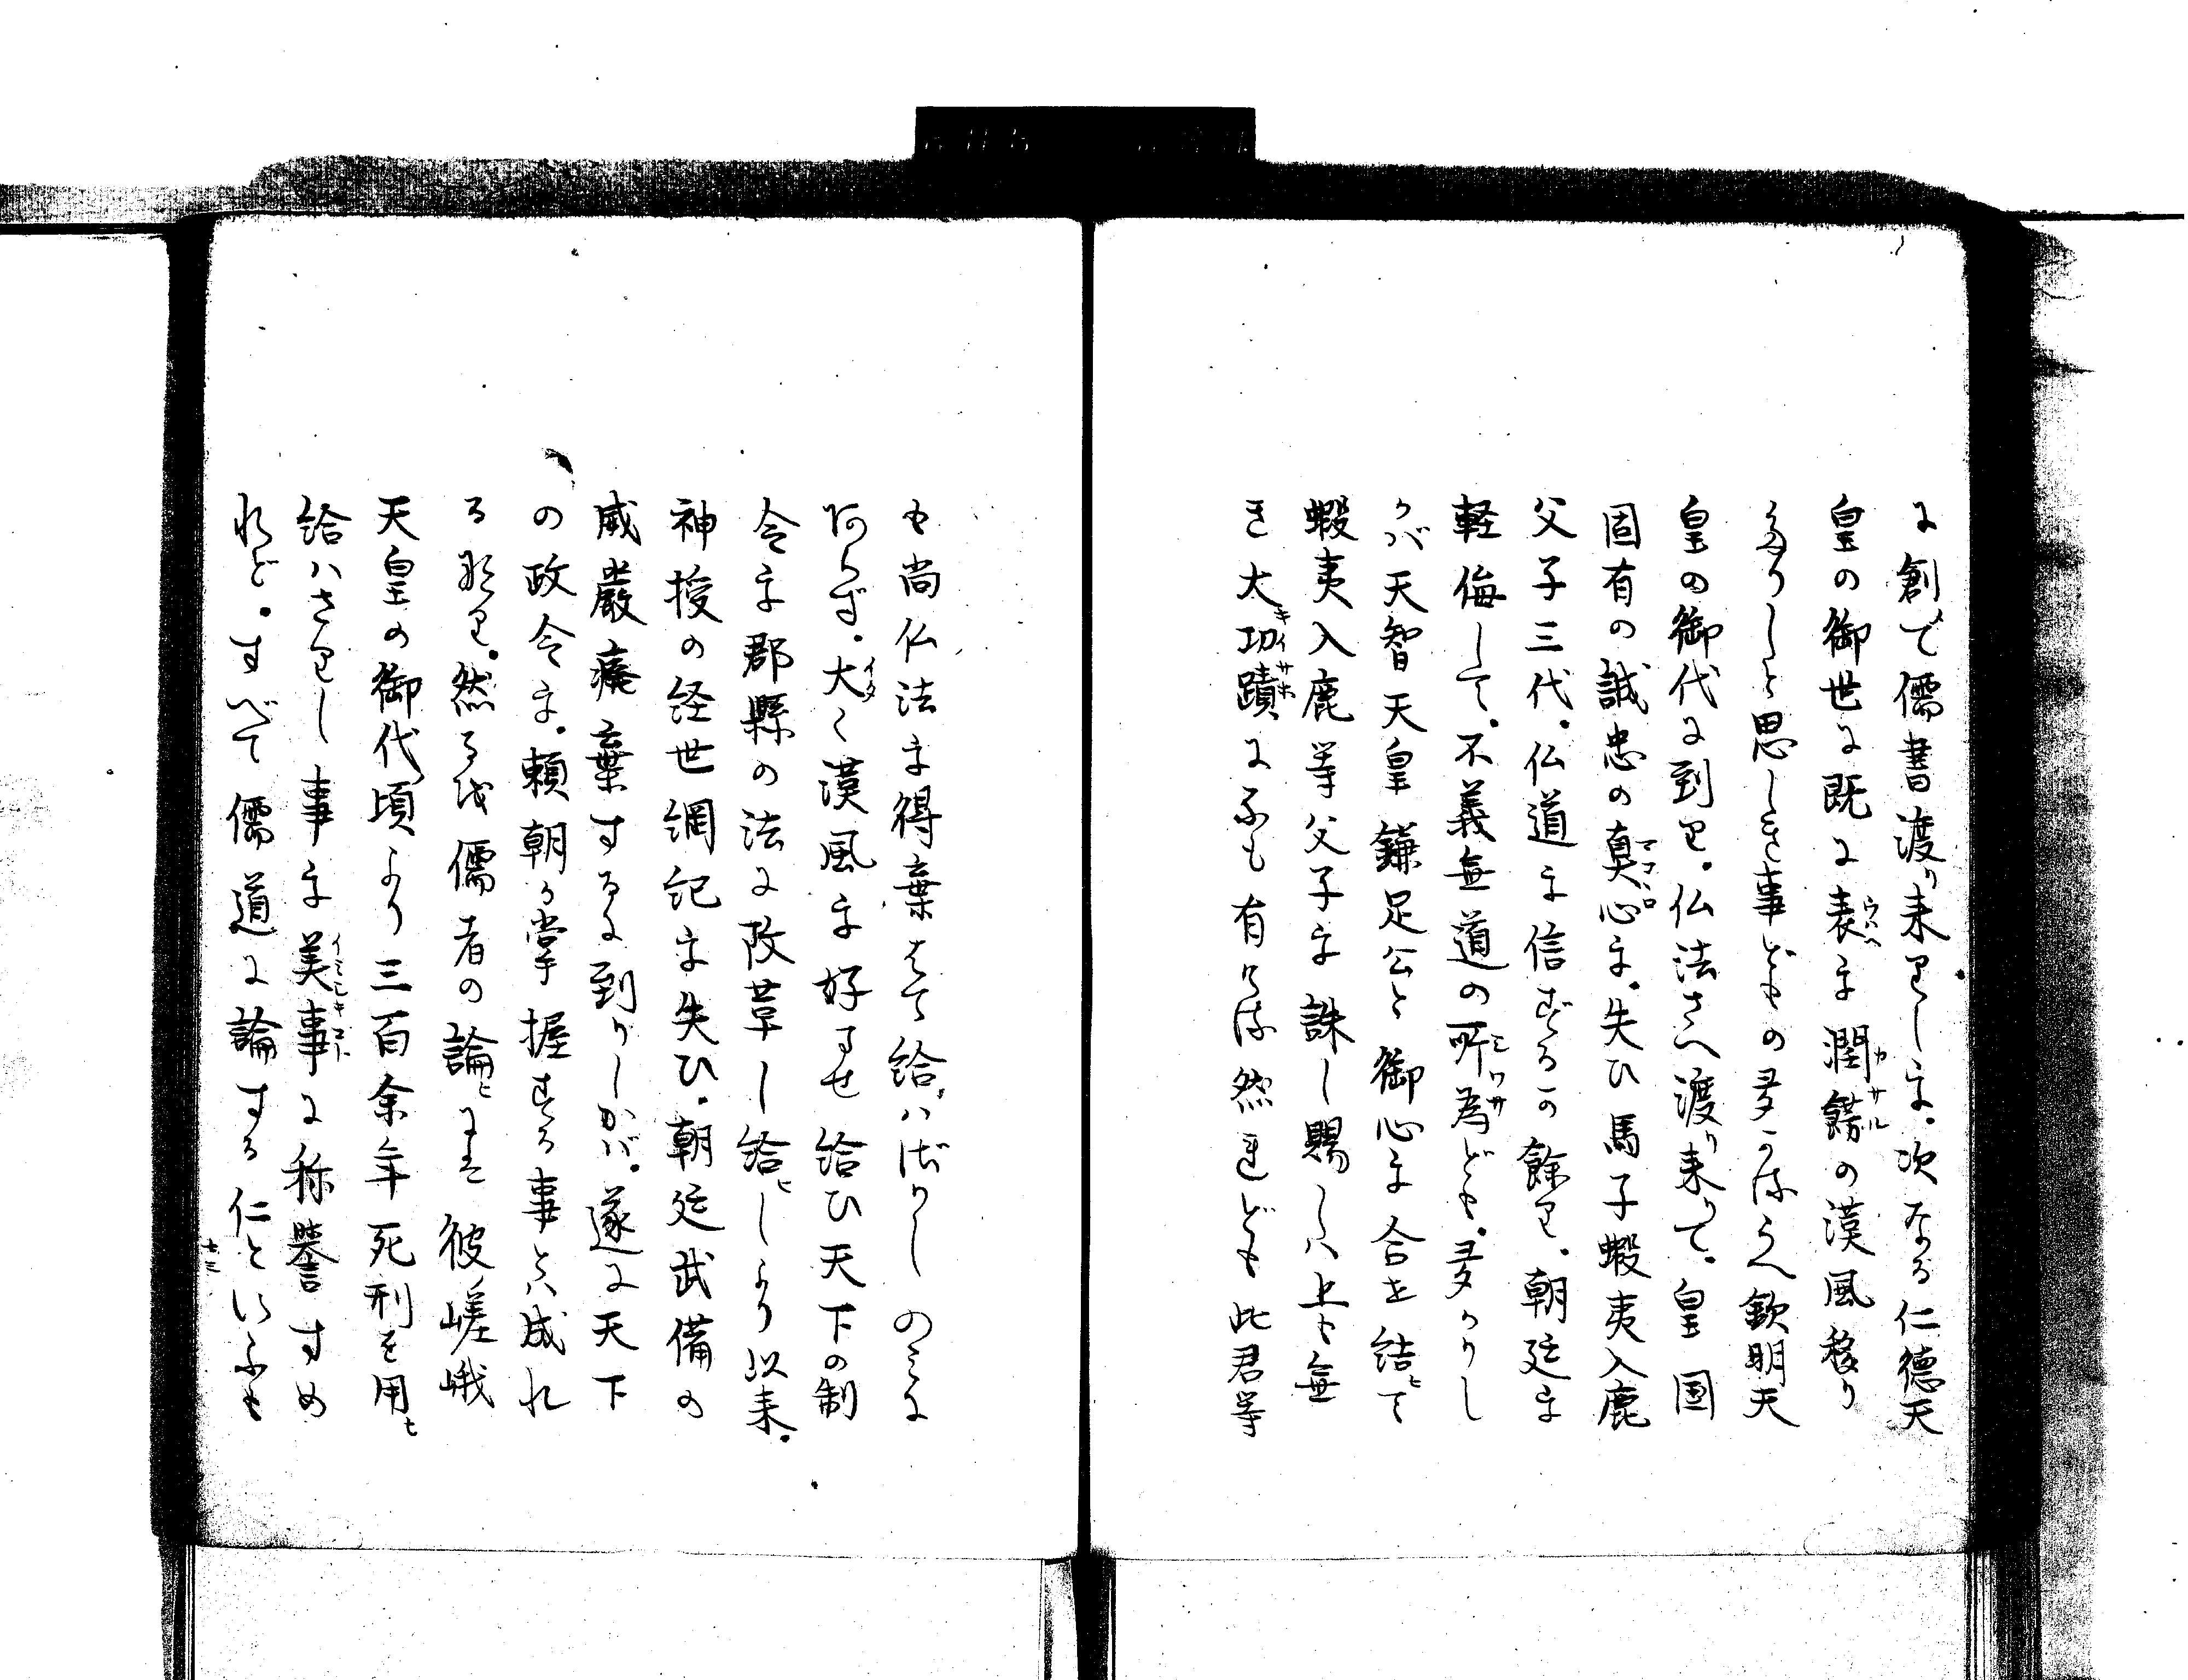 に創て儒書渡り来りしを。次なる仁徳天
皇の御世に既に表を潤飾の漢風移り
たりしと思しき事どもの多かるうへ欽明天
皇の御代に到り。仏法さへ渡り来りて。皇国
固有の誠忠の真心を。失ひ馬子蝦夷入鹿
父子三代。仏道を信ずるの余り。朝廷を
軽侮して。不義無道の所為ども。多かりし
かば天智天皇鎌足公と御心を合せ結て
蝦夷入鹿等父子を誅し賜しハ上も無
き大功蹟になも有ける然れども此君等
も尚仏法を得棄はて給はざりしのみに
あらず。大く漢風を好ませ給ひ天下の制
令を郡縣の法に改革し給ひしより以来。
神授の経世綱紀を失ひ。朝廷武備の
威厳廃棄するに到りしかば。遂に天下
の政令を。頼朝が掌握する事とハ成れ
るなり。然るを儒者の論にハ彼嵯峨
天皇の御代頃より三百余年死刑を用ヒ
給ハさりし事を美事に称誉すめ
れど。すべて儒道に論する仁といふも